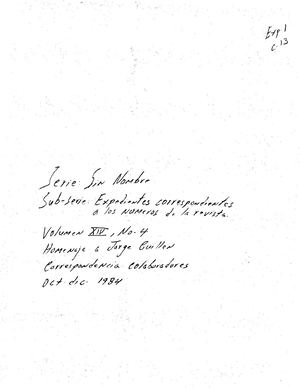 Exp 1
C-13
Serie: Sin Nombre
Sub-serie: Expedientes correspondientes
a los números de la revista.
Volumen XIV, No. 4
Homenaje a Jorge Guillen
Correspondencia colaboradores
Oct-dic. 1984